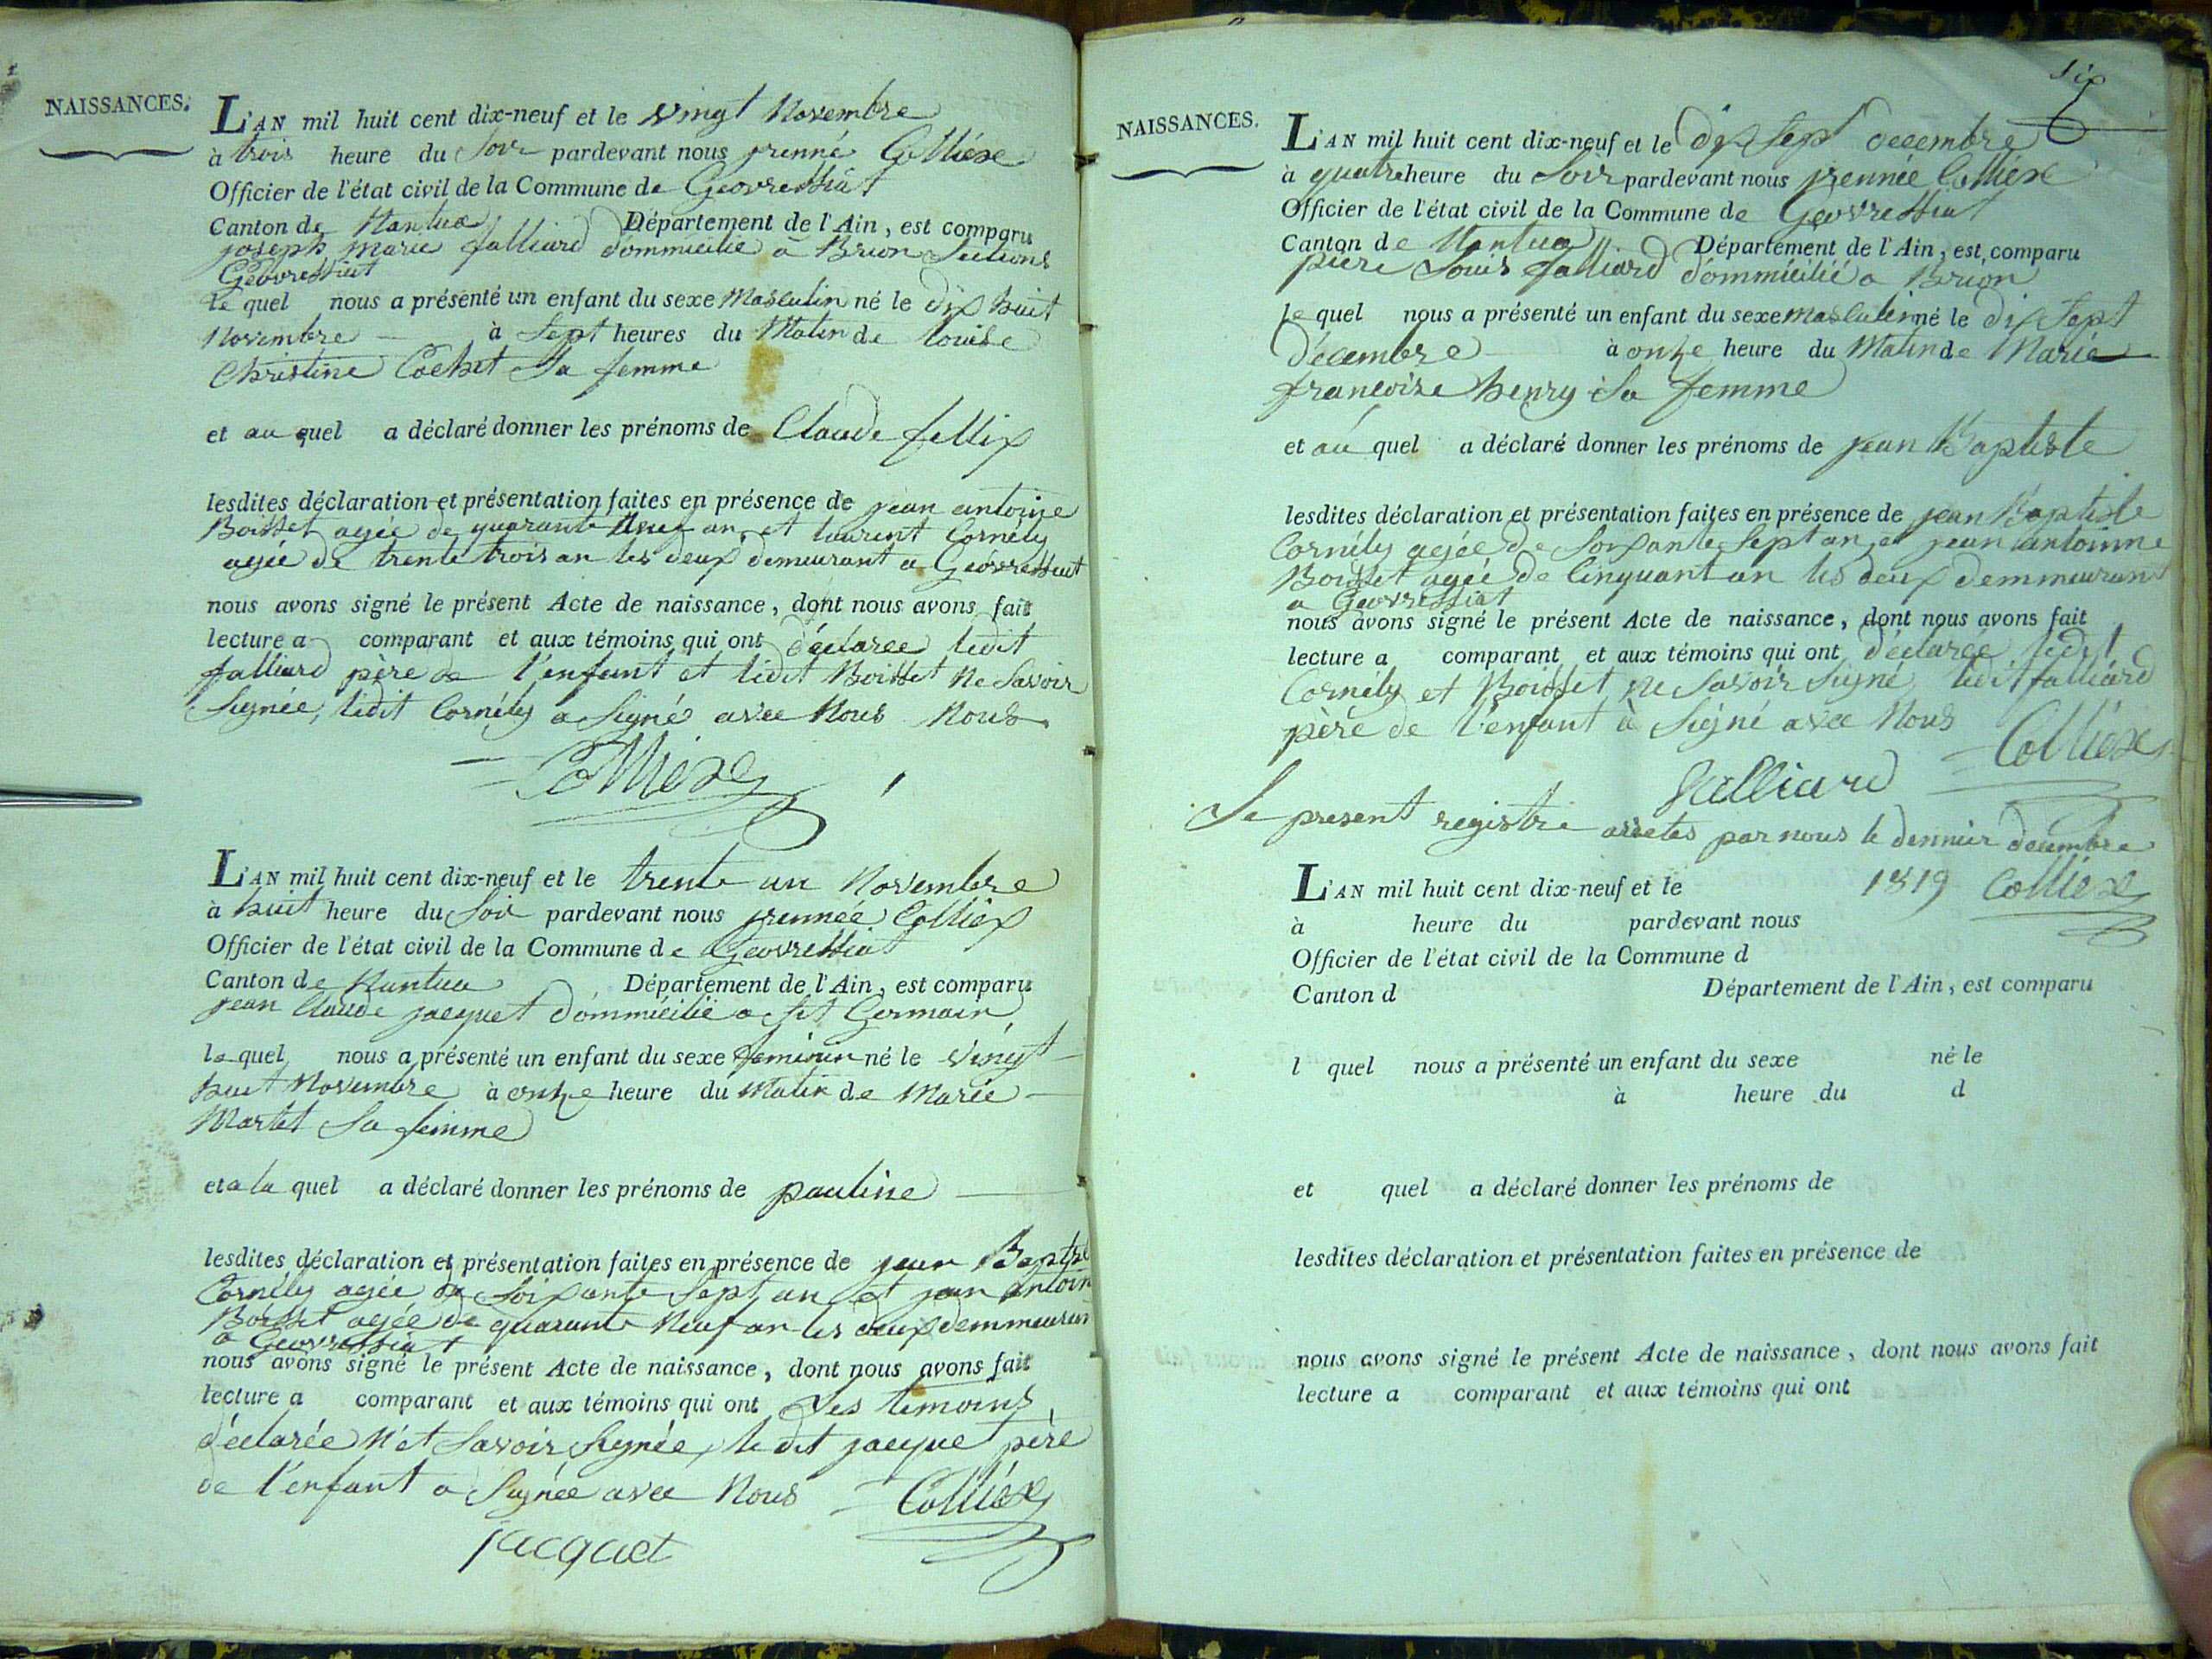 NAISSANCES.
L'AN mil huit cent dix-neuf et le vingt Novembre
à trois heure du Soir pardevant nous jrenné Colliéxe
Officier de l'état civil de la Commune de Geovressiat
Canton de Nantua Département de l'Ain, est comparu
joseph marie falliard dommicilié à Brion Sections
Geovressiat
le quel nous a présenté un enfant du sexe Masculin né le dix huit
Novembre à Sept heures du Matin de louise
Christine Cochet Sa femme
et au quel a déclaré donner les prénoms de Claude fellix
lesdites déclaration et présentation faites en présence de jean antoine
Boisset agée de quarante neuf an et laurent Cornély
agée de trente trois an les deux demeurant a Géovressiat
nous avons signé le présent Acte de naissance, dont nous avons fait
lecture a comparant et aux témoins qui ont déclaree ledit
falliard père de l'enfant et ledit Boisset Ne Savoir
Signée, ledit Cornély a Signé avec Nous Nous
Colliéxe
L'AN mil huit cent dix-neuf et le trente un Novembre
à huit heure du Soir pardevant nous jrennée Colliex
Officier de l'état civil de la Commune de Geovressiat
Canton de Nantua Département de l'Ain, est comparu
jean Claude jacquet dommicilié a St Germain
le quel nous a présenté un enfant du sexe feminin né le vingt
huit Novembre à onze heure du Matin de Marie
Martet Sa femme
et a la quel a déclaré donner les prénoms de pauline
lesdites déclaration et présentation faites en présence de jean Baptste
Cornély agée de Soixante Sept an et jean antoin
Boisset agée de quarante Neuf an les deux demmeuran
a Geovressiat
nous avons signé le présent Acte de naissance, dont nous avons fait
lecture a comparant et aux témoins qui ont Les temoins
déclarée N'et Savoir Signée, le dit jacquet père
de l'enfant a Signée avec Nous Colliéxe
jacquet
Six
NAISSANCES.
L'AN mil huit cent dix-neuf et le dix Sept decembre
à quatre heure du Soir pardevant nous jrennée Colliéxe
Officier de l'état civil de la Commune de Geovressiat
Canton de Nantua Département de l'Ain, est comparu
piere Louis falliard dommicilié a Brion
le quel nous a présenté un enfant du sexe masculin né le dix Sept
décembre à onze heure du Matin de Marie
francoise henry Sa femme
et au quel a déclaré donner les prénoms de jean Baptiste
lesdites déclaration et présentation faites en présence de jean Baptiste
Cornély agée de Soixante Sept an et jean antoinne
Boisset agée de Cinquant an les deux demmeurant
a Geovressiat
nous avons signé le présent Acte de naissance, dont nous avons fait
lecture a comparant et aux témoins qui ont déclarée ledit
Cornély et Boisset Ne Savoir Signé ledit falliard
père de l'enfant à Signé avec Nous Colliéxe
falliard
Le present registre arretés par nous le dernier decembre
1819 Colliéxe
L'AN mil huit cent dix-neuf et le
à heure du pardevant nous
Officier de l'état civil de la Commune d
Canton d Département de l'Ain, est comparu
l quel nous a présenté un enfant du sexe né le
à heure du d
et quel a déclaré donner les prénoms de
lesdites déclaration et présentation faites en présence de
nous avons signé le présent Acte de naissance, dont nous avons fait
lecture a comparant et aux témoins qui ont